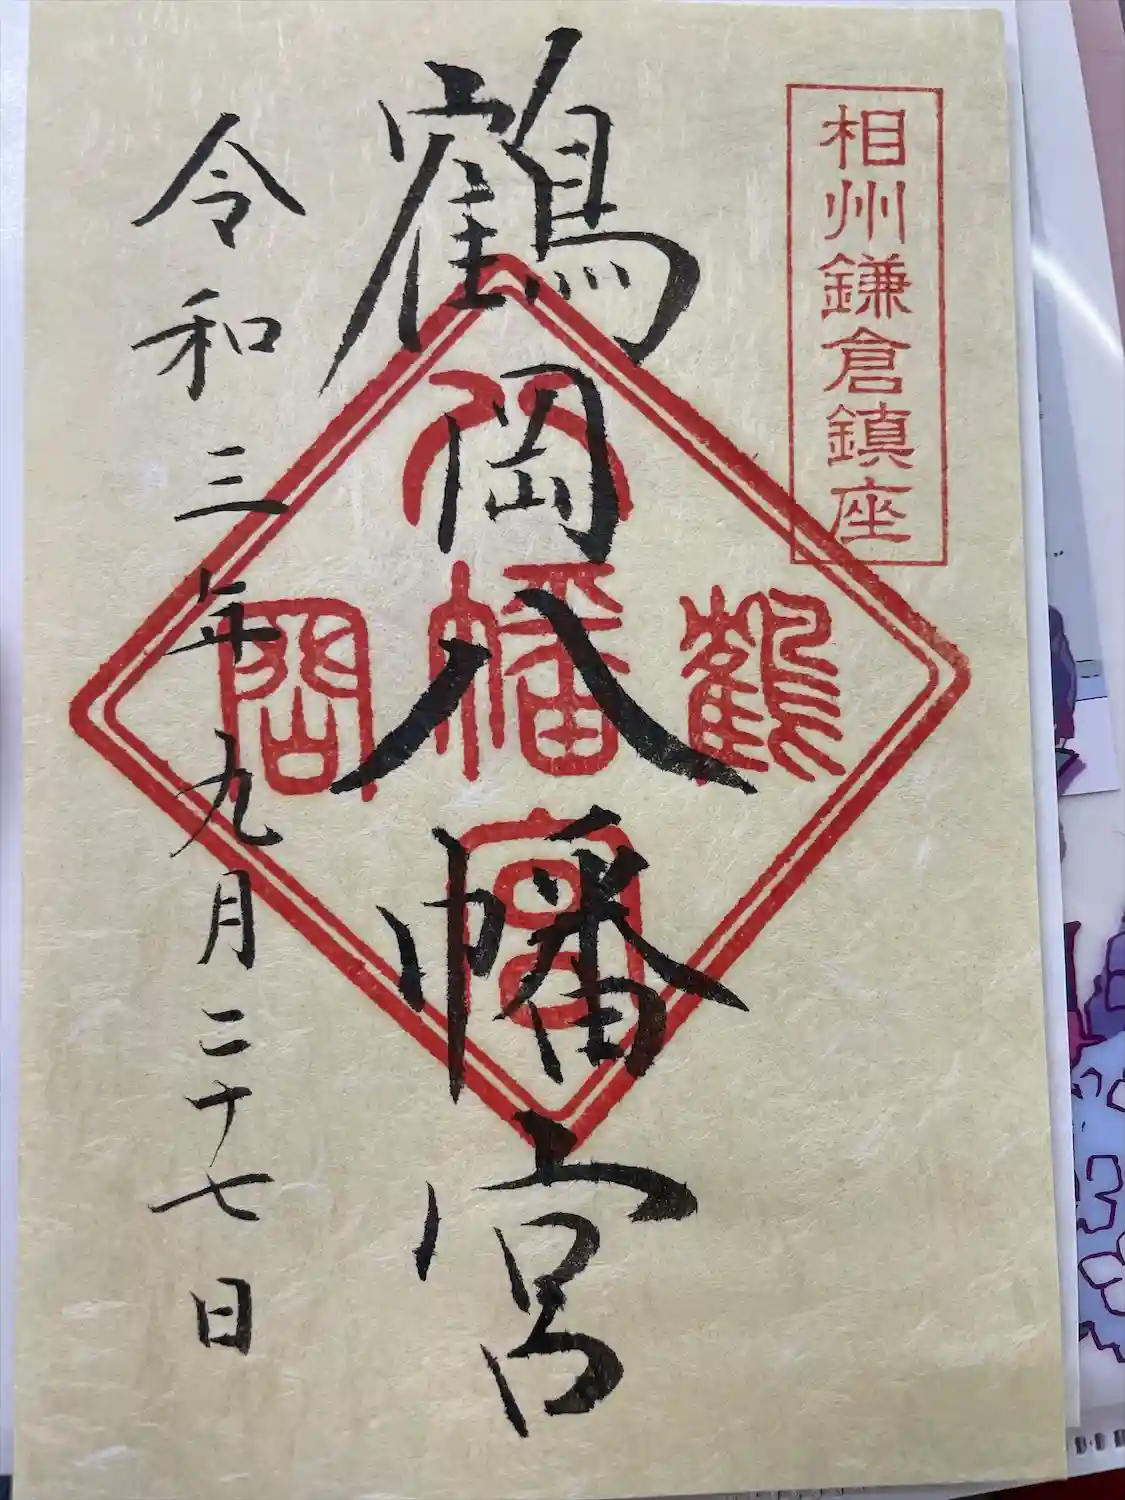 相州鎌倉鎮座
鶴岡八幡宮
鶴岡
八幡宮
令和三年九月二十七日